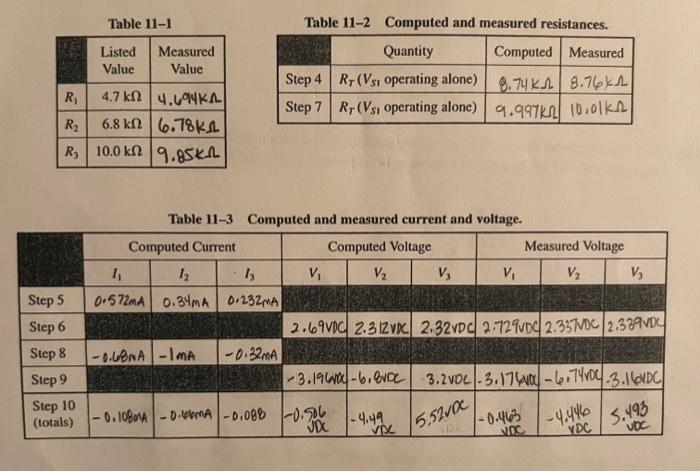 Table 11–1
Listed Value Measured Value
R1 4.7 kΩ 4.694KΩ
R2 6.8 kΩ 6.78KΩ
R3 10.0 kΩ 9.85KΩ
Table 11–2 Computed and measured resistances.
Quantity Computed Measured
Step 4 RT (VS1 operating alone) 8.74KΩ 8.76KΩ
Step 7 RT (VS1 operating alone) 9.997KΩ 10.01KΩ
Table 11–3 Computed and measured current and voltage.
Computed Current Computed Voltage Measured Voltage
I1 I2 I3 V1 V2 V3 V1 V2 V3
Step 5 0.572mA 0.34mA 0.232mA
Step 6 2.69VDC 2.312VDC 2.32VDC 2.729VDC 2.337VDC 2.339VDC
Step 8 -0.68mA -1mA -0.32mA
Step 9 -3.196VDC -6.8VDC 3.2VDC -3.176VDC -6.74VDC -3.16VDC
Step 10 (totals) -0.108mA -0.66mA -0.088 -0.506 VDC -4.49 VDC 5.52VDC -0.463 VDC -4.446 VDC 5.493 VDC